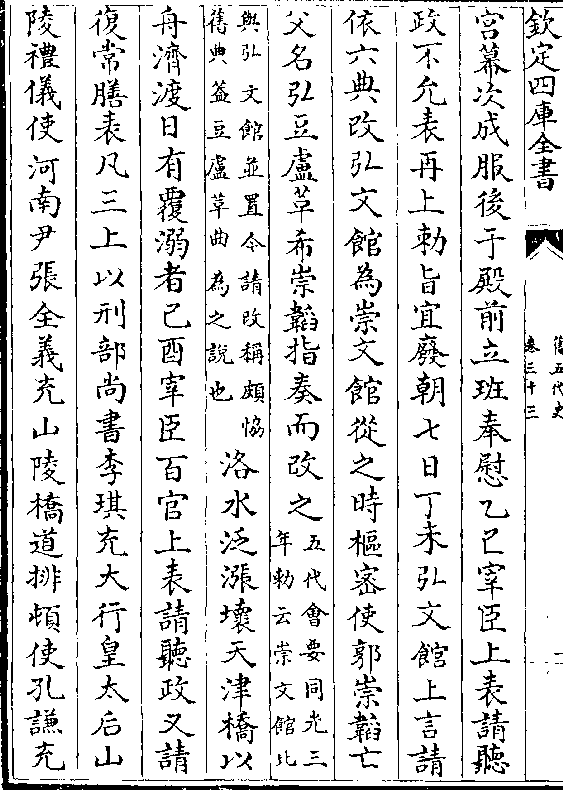 欽定四庫全書
舊五代史
卷三十三
宮幕次成服後于殿前立班奉慰乙巳宰臣上表請聽
政不允表再上勅旨宜廢朝七日丁未弘文館上言請
依六典改弘文館為崇文館從之時樞密使郭崇韜亡
父名弘豆盧革希崇韜指奏而改之五代會要同光三
年勅云崇文館比
與弘文館並置今請改稱頗恊
舊典葢豆盧革曲為之說也洛水泛漲壞天津橋以
舟濟渡日有覆溺者己酉宰臣百官上表請聽政又請
復常膳表凡三上以刑部尚書李琪充大行皇太后山
陵禮儀使河南尹張全義充山陵橋道排頓使孔謙充